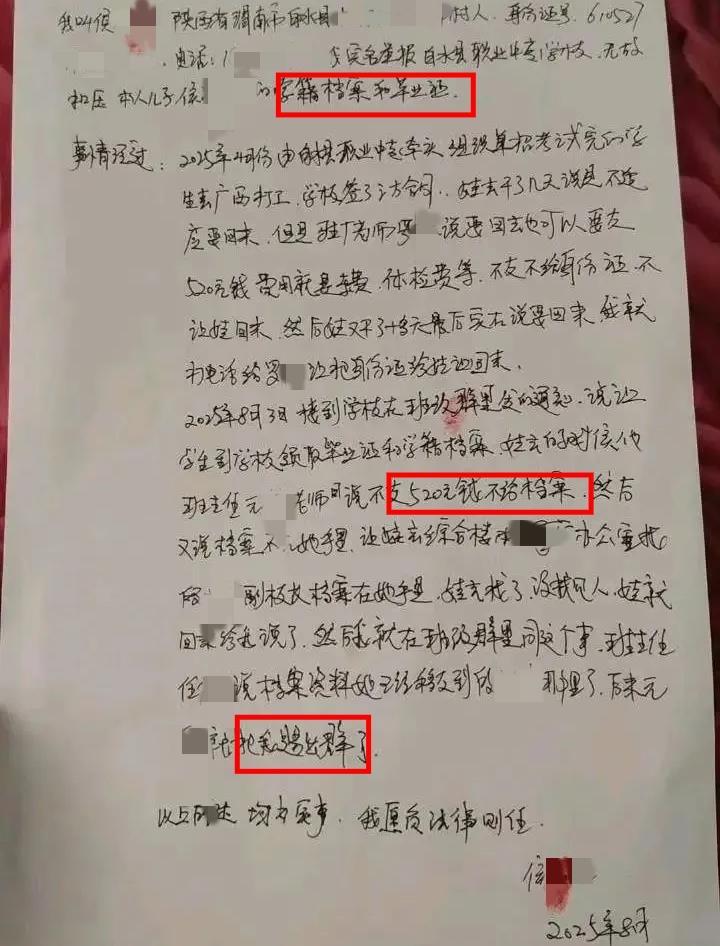 我叫侯 陕西省渭南市白水县 村人，身份证号，610527
，电话：1 我实名举报白水县职业中专学校，无故
扣压本人儿子侯 的学籍档案和毕业证。
事情经过：2025年4月份由白水县职业中专牵头组织单招考试完的学
生去广西打工，学校签了合同，娃去干了几天说是不适
应要回来，但是驻厂老师罗 说要回去也可以要交
520元钱费用就是车费，体检费等，不交不给身份证，不
让娃回来，然后娃又干了十多天最后实在说要回来，我就
打电话给罗 让把身份证给娃让回来。
2025年8月3日接到学校在班级群里发的通知，说让
学生到学校领取毕业证和学籍档案，娃去的时候他
班主任元 老师说不交520元钱不给档案，然后
又说档案不 她手里，让娃去综合楼 办公室找
副校长档案在她手里，娃去找了，没找见人，娃就
回来给我说了，然后我就在班级群里问这个事，班主任
任 说档案资料她已经移交到 那里了，后来元
把我踢出群了。
以上 均为实事，我愿负法律责任。
侯
2025年8月